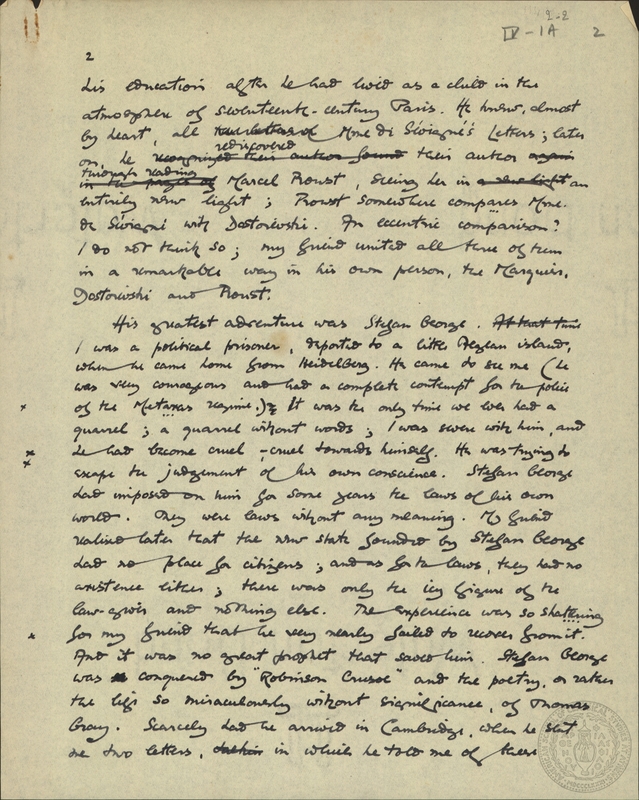 2-2
IV - IA 2
2
his education after he had lived as a child in the
atmosphere of seventeenth-century Paris. He knew, almost
by heart, all the letters of Mme de Sévigné's Letters; later
rediscovered
on, he recognized their author found their author again
through reading
in the pages of Marcel Proust, seeing her in a new light an
entirely new light; Proust somewhere compares Mme.
de Sévigné with Dostoievski. An eccentric comparison?
I do not think so; my friend united all three of them
in a remarkable way in his own person, the Marquise,
Dostoievski and Proust.
His greatest adventure was Stefan George. At that time
I was a political prisoner, deported to a little Aegean island,
when he came home from Heidelberg. He came to see me (he
was very courageous and had a complete contempt for the police
of the Metaxas regime.) It was the only time we ever had a
quarrel; a quarrel without words; I was severe with him, and
he had become cruel - cruel towards himself. He was trying to
escape the judgement of his own conscience. Stefan George
had imposed on him for some years the laws of his own
world. They were laws without any meaning. My friend
realised later that the new state founded by Stefan George
had no place for citizens; and as for the laws, they had no
existence either; there was only the icy figure of the
law-giver and nothing else. The experience was so shattering
for my friend that he very nearly failed to recover from it.
And it was no great prophet that saved him. Stefan George
was conquered by "Robinson Crusoe" and the poetry, or rather
the life so miraculously without significance, of Thomas
Gray. Scarcely had he arrived in Cambridge, when he sent
me two letters, in which he told me of these